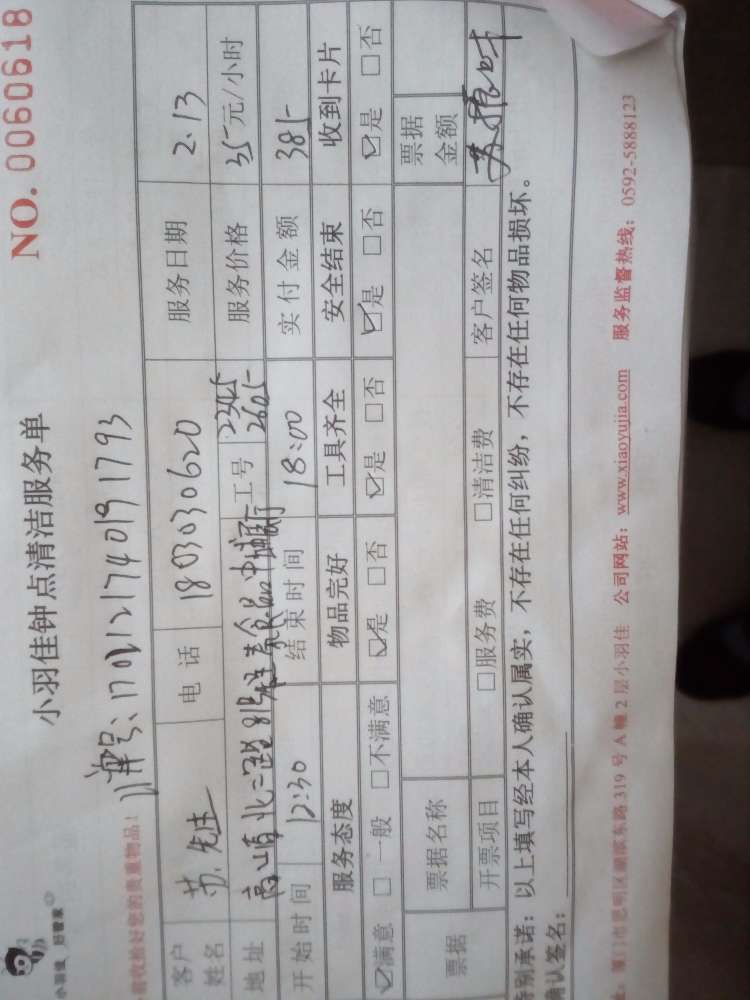 小羽佳 好管家
小羽佳钟点清洁服务单
NO. 0060618
收捡好您的贵重物品!
单号: 1702121740191793
客户姓名 苏先生 电话 18030300620 服务日期 2.13
地址 高崎北二路 工号 2345 2605 服务价格 35元/小时
开始时间 12:30 结束时间 18:00 实付金额 385
服务态度 物品完好 工具齐全 安全结束 收到卡片
☑满意 □一般 □不满意 ☑是 □否 ☑是 □否 ☑是 □否 ☑是 □否
票据 票据名称 票据金额
开票项目 □服务费 □清洁费 客户签名 苏
特别承诺: 以上填写经本人确认属实,不存在任何纠纷,不存在任何物品损坏。
确认签名:
厦门市思明区湖滨东路 319 号 A 幢 2 层小羽佳 公司网站: www.xiaoyujia.com 服务监督热线: 0592-5888123